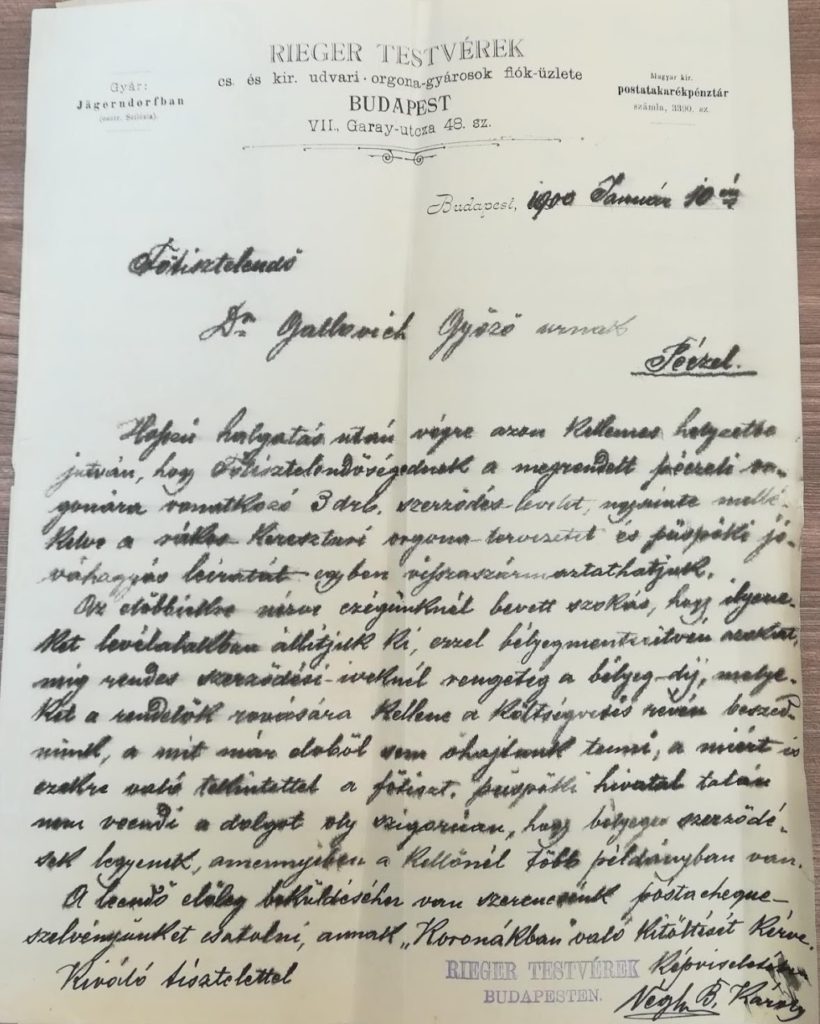 RIEGER TESTVÉREK
cs. és kir. udvari orgona-gyárosok fiók-üzlete
BUDAPEST
VII., Garay-utcza 48. sz.
Gyár:
Jägerndorfban
(osztr. Szilézia).
Magyar kir.
postatakarékpénztár
számla, 3390. sz.
Budapest, 1900 Január 10én
Főtisztelendő
Dr Gallovich Győző urnak
Péczel.
Hosszú halgatás után végre azon kellemes helyzetbe
jutván, hogy Főtisztelendőségednek a megrendelt péczeli or-
gonára vonatkozó 3 drb. szerződés-levelet, ugyszinte mellé-
kelve a rákos-kereszturi orgona-tervezetet és püspöki jó-
váhagyás leiratát egyben visszaszármaztathatjuk.
Az előbbiekre nézve czégünknél bevett szokás, hogy ilyene-
ket levélalakban állitjuk ki, ezzel bélyegmentesitvén azokat,
mig rendes szerződési-iveknél rengeteg a bélyeg-dij, melye-
ket a rendelők rovására kellene a költségvetés révén beszed-
nünk, a mit már elvből sem óhajtunk tenni, a miért is
ezekre való tekintettel a főtiszt. püspöki hivatal talán
nem veendi a dolgot oly szigorúan, hogy bélyeges szerződé-
sek legyenek, amennyiben a kellőnél több példányban van.
A leendő előleg beküldéséhez van szerencsénk postacheque-
szelvényünket csatolni, annak „Koronákban" való kitöltését kérve.
Kiváló tisztelettel
RIEGER TESTVÉREK
BUDAPESTEN.
Végh B. Károly